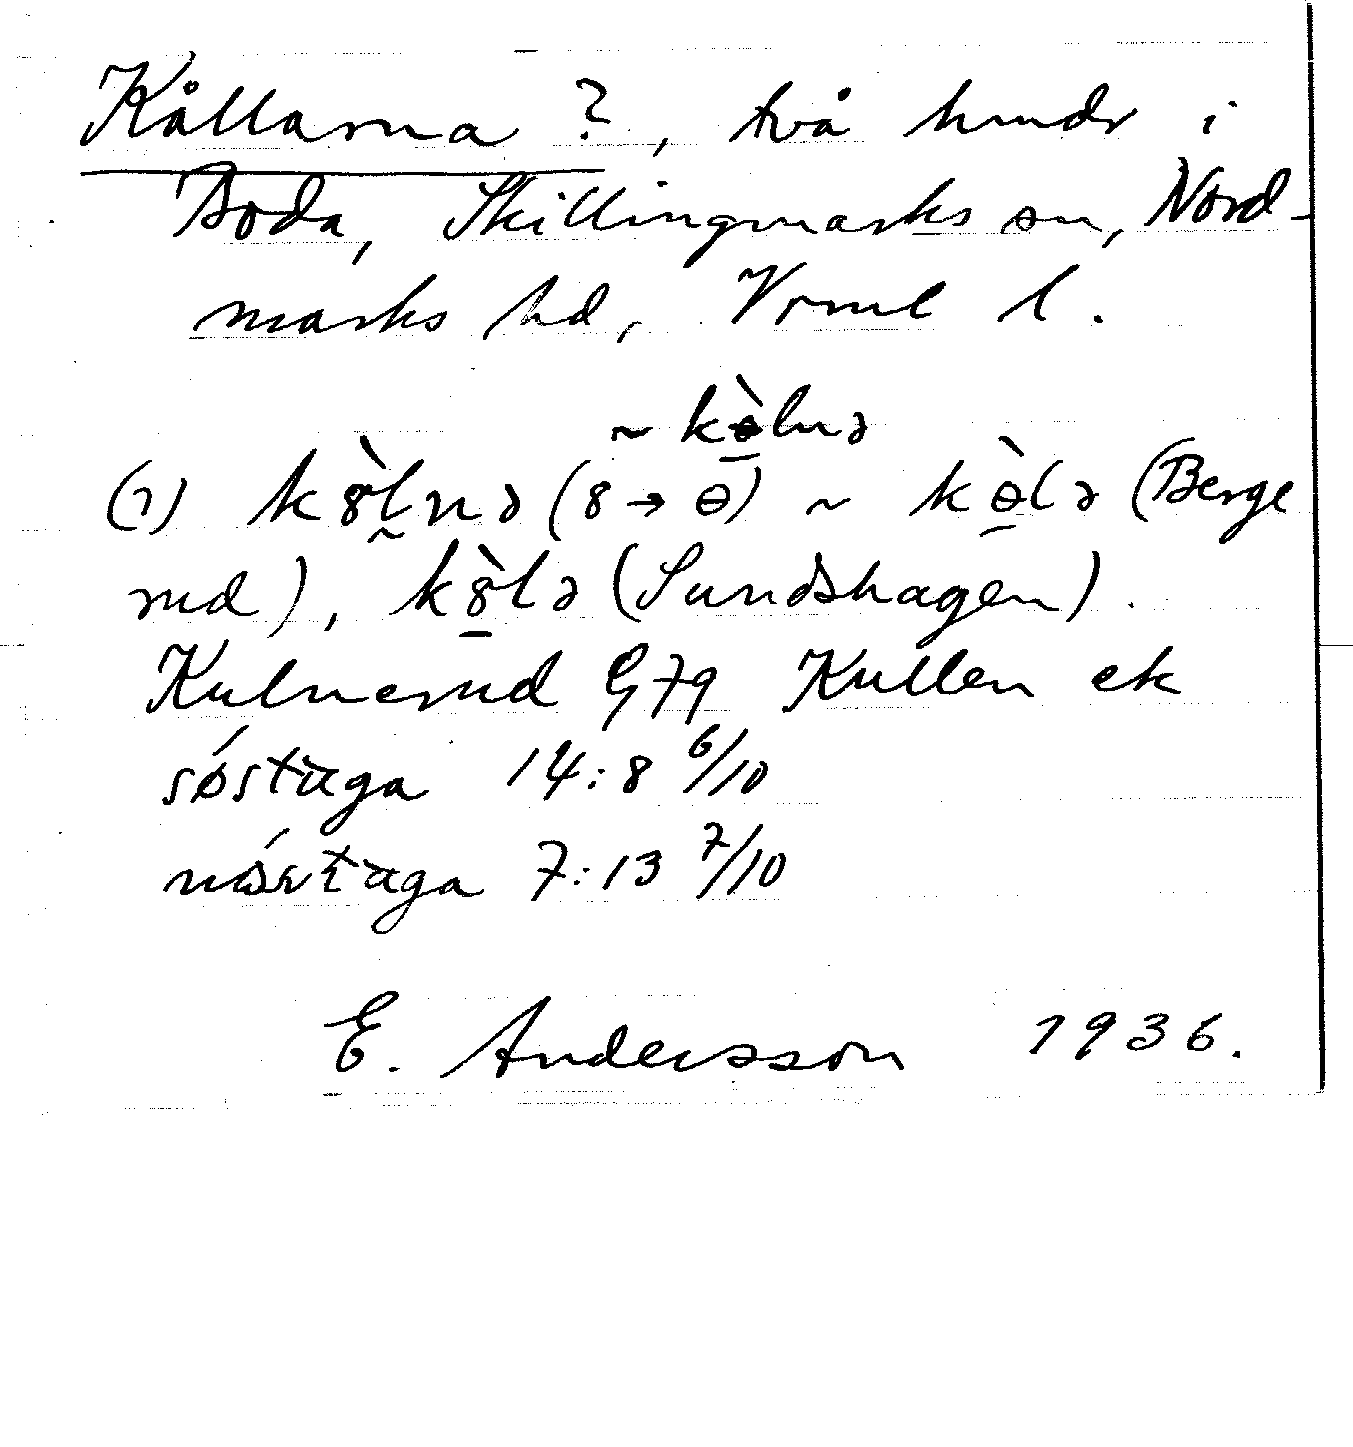 Kållarna ?, två hmdr i
Boda, Skillingmarks sn, Nord-
marks hd, Vrml l.
~ kɵ̀lnə
(1) kȣ̀lnə (ȣ → ɵ) ~ kɵ̀lə (Berge
rud), kȣ̀lə (Sundshagen).
Kulnerud G79 Kullen ek
søstaga 14:8 6/10
7:13 7/10
E. Andersson 1936.